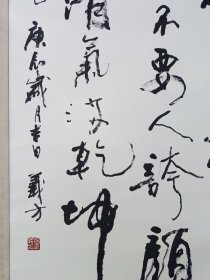 不要人誇顏
清氣滿乾坤
庚辰歲月吉日 義方